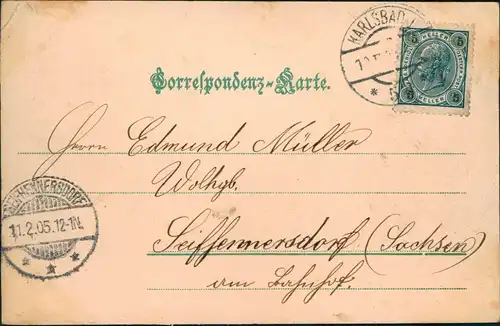 KARLSBAD
5 HELLER 5
5 HELLER 5
Correspondenz-Karte.
Herrn Edmund Müller
Wolhgb.
Seiffennersdorf (Sachsen)
11.2.05.12-1N.
am Bahnhof.